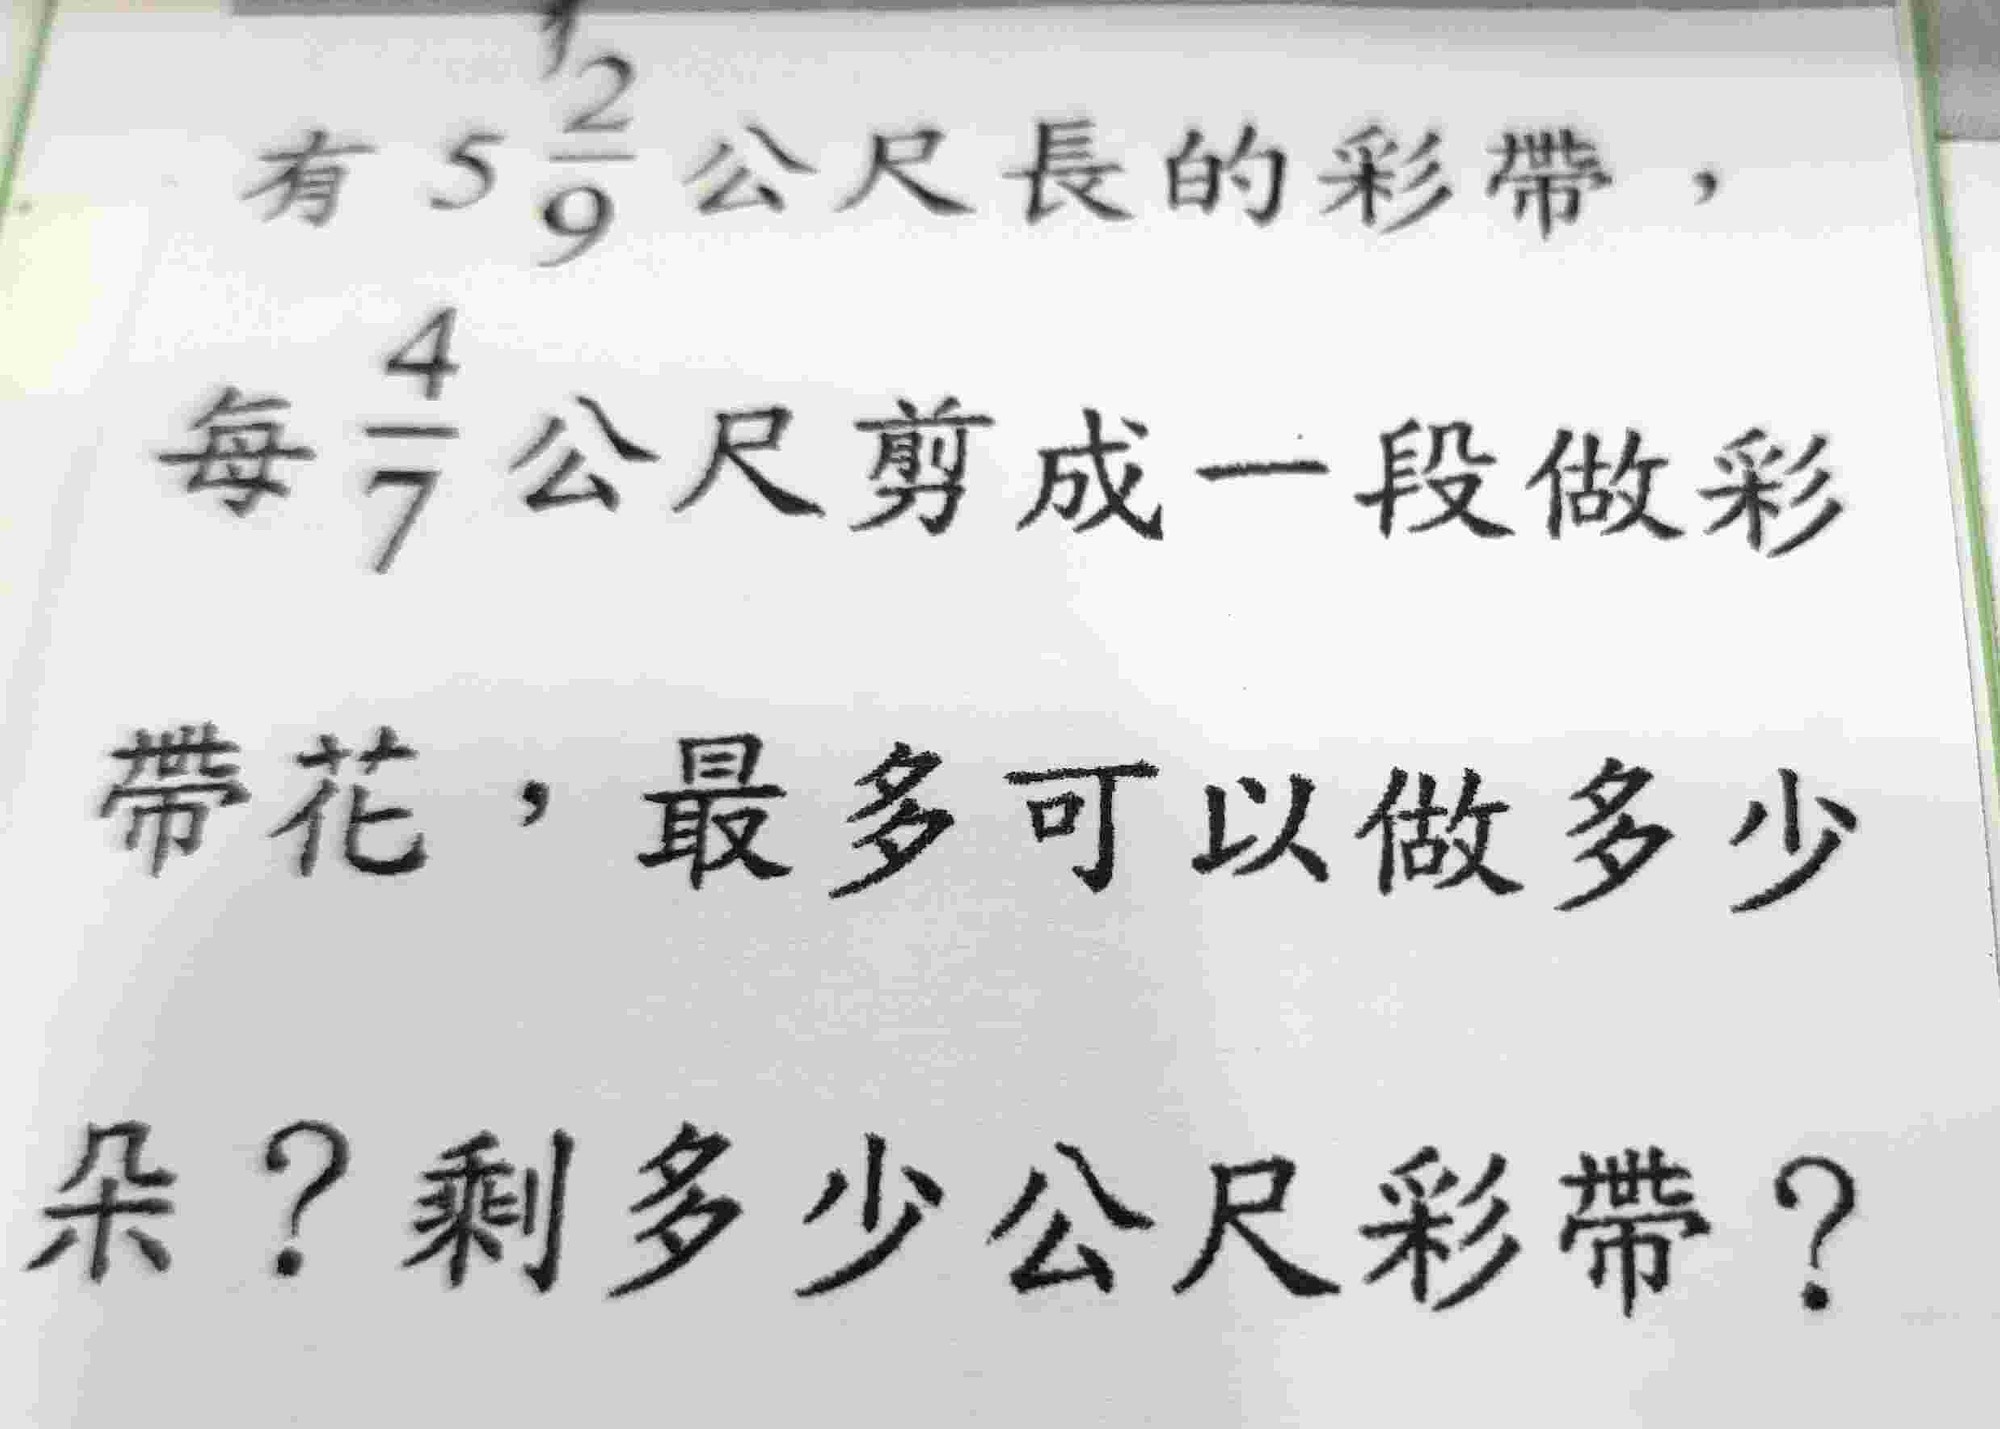 有 5 2/9 公尺長的彩帶，
每 4/7 公尺剪成一段做彩
帶花，最多可以做多少
朵？剩多少公尺彩帶？